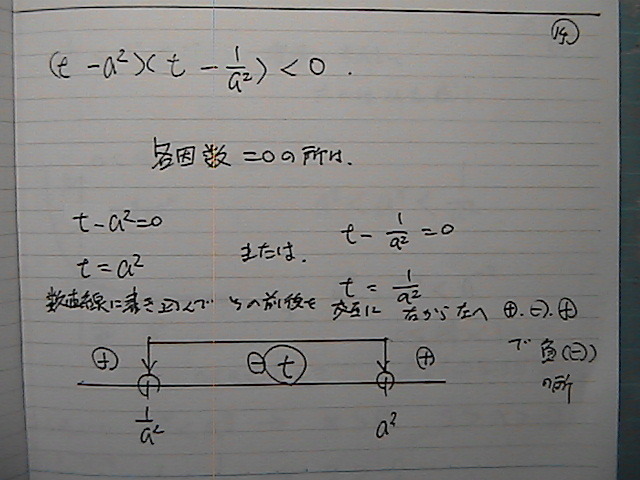 ⑭
(t - a²)(t - 1/a²) < 0 .
各因数 = 0 の所は、
t - a² = 0
t = a²
または、
t - 1/a² = 0
t = 1/a²
数直線に書き込んで その前後を 交互に 右から左へ ⊕.⊖.⊕
で 負(⊖)
の所
⊕ ⊖ t ⊕
1/a² a²